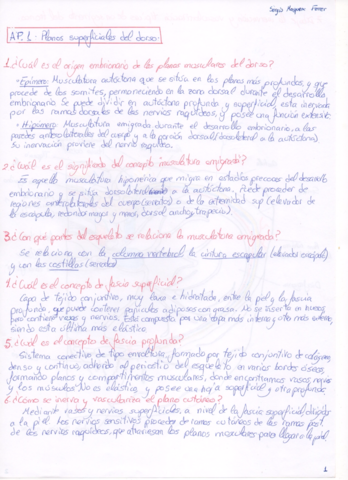 Sergio Marqueño Pérez
AP. 6: Planos superficiales del dorso
1. ¿Cuál es el origen embrionario de los planos musculares del dorso?
- Epímero: Musculatura autóctona que se sitúa en los planos más profundos, y que
procede de los somites, permaneciendo en la zona dorsal durante el desarrollo
embrionario. Se puede dividir en autóctona profunda y superficial, está inervada
por las ramas dorsales de los nervios raquídeos, y posee una función extensora.
- Hipómero: Musculatura emigrada durante el desarrollo embrionario, a las
paredes anterolaterales del cuerpo y a la porción dorsal (dorsolateral a la autóctona)
Su inervación proviene del nervio raquídeo.
2. ¿Cuál es el significado del concepto musculatura emigrada?
Es aquella musculatura hipomérica que migra en estadíos precoces del desarrollo
embrionario y se sitúa dorsolateralmente a la autóctona. Puede proceder de
regiones anterolaterales del cuerpo (serratos) o de la extremidad sup (elevador de
la escápula, redondo mayor y menor, dorsal ancho, trapecio).
3. ¿Con qué partes del esqueleto se relaciona la musculatura emigrada?
Se relaciona con la columna vertebral, la cintura escapular
y con las costillas (serratos)
4. ¿Cuál es el concepto de fascia superficial?
Capa de tejido conjuntivo, muy laxo e hidratado, entre la piel y la fascia
profunda, que puede contener panículos adiposos con grasa. No se inserta en huesos,
pero contiene vasos y nervios. Está compuesta por una hoja más interna y otra más externa,
siendo esta última más elástica.
5. ¿Cuál es el concepto de fascia profunda?
Sistema conectivo de tipo envoltura, formado por tejido conjuntivo de colágeno,
denso y continuo, adherido al periostio del esqueleto en varios bordes óseos,
formando planos y compartimentos musculares, donde encontramos vasos, nervios
y los músculos. No es elástica, y posee una hoja superficial y otra profunda.
6. ¿Cómo se inerva y vasculariza el plano cutáneo?
Mediante vasos y nervios superficiales, a nivel de la fascia superficial, dirigidos
a la piel. Los nervios sensitivos proceden de ramas cutáneas de las ramas post.
de los nervios raquídeos, que atraviesan los planos musculares para llegar a la piel.
1